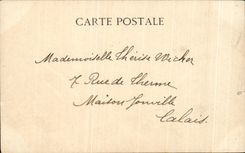 CARTE POSTALE
Mademoiselle Thérèse Vicher
7 Rue de Therme
Maison Jonville
Calais.